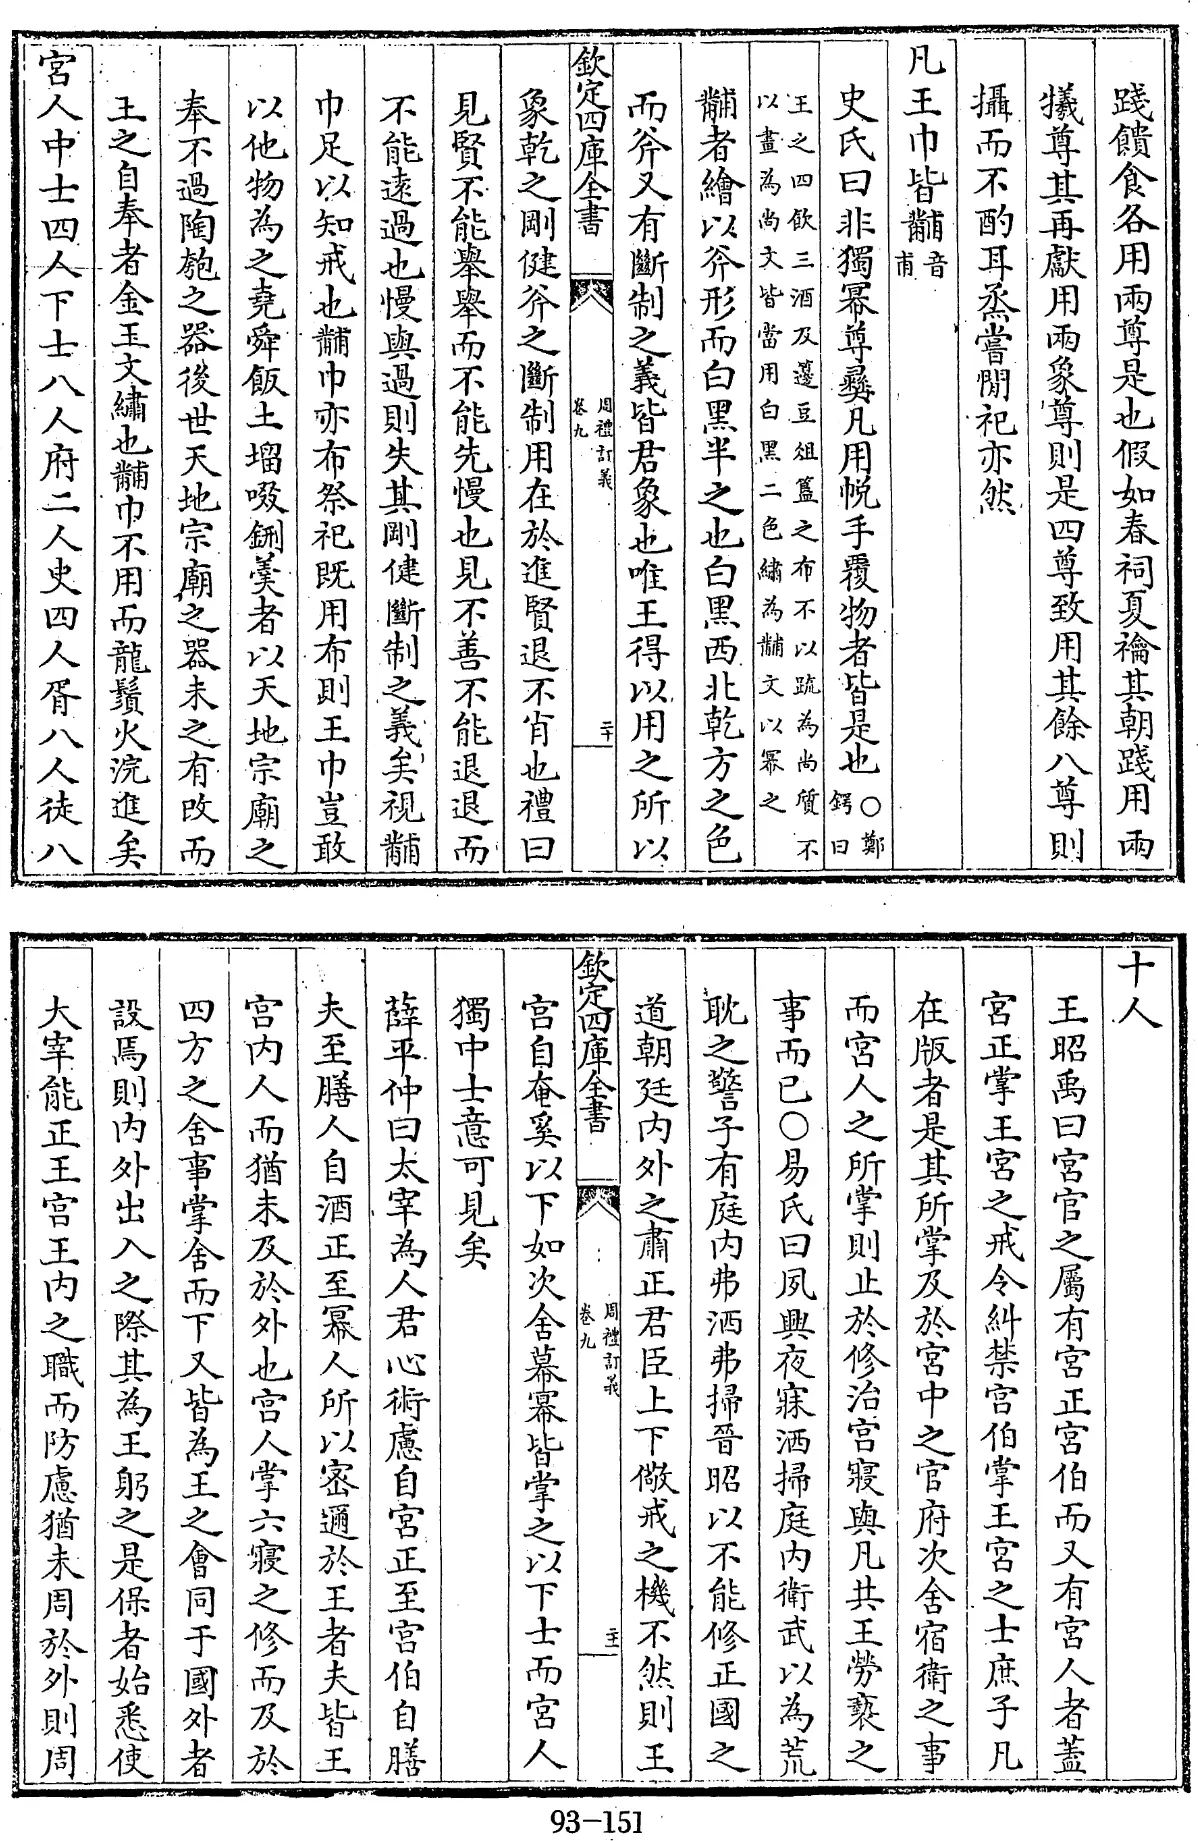 踐饋食各用兩尊是也假如春祠夏禴其朝踐用兩
犧尊其再獻用兩象尊則是四尊致用其餘八尊則
攝而不酌耳烝嘗間祀亦然
凡王巾皆黼音甫
史氏曰非獨幂尊彝凡用帨手覆物者皆是也○鄭鍔曰
王之四飲三酒及籩豆俎簋之布不以疏為尚質不
以畫為尚文皆當用白黑二色繡為黼文以幂之
黼者繪以斧形而白黑半之也白黑西北乾方之色
而斧又有斷制之義皆君象也唯王得以用之所以
欽定四庫全書
周禮訂義
卷九
二十
象乾之剛健斧之斷制用在於進賢退不肖也禮曰
見賢不能舉舉而不能先慢也見不善不能退退而
不能遠過也慢與過則失其剛健斷制之義矣視黼
巾足以知戒也黼巾亦布祭祀既用布則王巾豈敢
以他物為之堯舜飯土塯啜鉶羮者以天地宗廟之
奉不過陶匏之器後世天地宗廟之器未之有改而
王之自奉者金玉文繡也黼巾不用而龍鬚火浣進矣
宮人中士四人下士八人府二人史四人胥八人徒八
十人
王昭禹曰宮官之屬有宮正宮伯而又有宮人者蓋
宮正掌王宮之戒令糾禁宮伯掌王宮之士庶子凡
在版者是其所掌及於宮中之官府次舍宿衛之事
而宮人之所掌則止於修治宮寢與凡共王勞褻之
事而已○易氏曰夙興夜寐洒掃庭內衛武以為荒
耽之警子有庭內弗洒弗掃晉昭以不能修正國之
道朝廷內外之肅正君臣上下儆戒之機不然則王
欽定四庫全書
周禮訂義
卷九
二十一
宮自奄奚以下如次舍幕幂皆掌之以下士而宮人
獨中士意可見矣
薛平仲曰太宰為人君心術慮自宮正至宮伯自膳
夫至膳人自酒正至幂人所以密邇於王者夫皆王
宮內人而猶未及於外也宮人掌六寢之修而及於
四方之舍事掌舍而下又皆為王之會同于國外者
設焉則內外出入之際其為王躬之是保者始悉使
大宰能正王宮王內之職而防慮猶未周於外則周
93-151